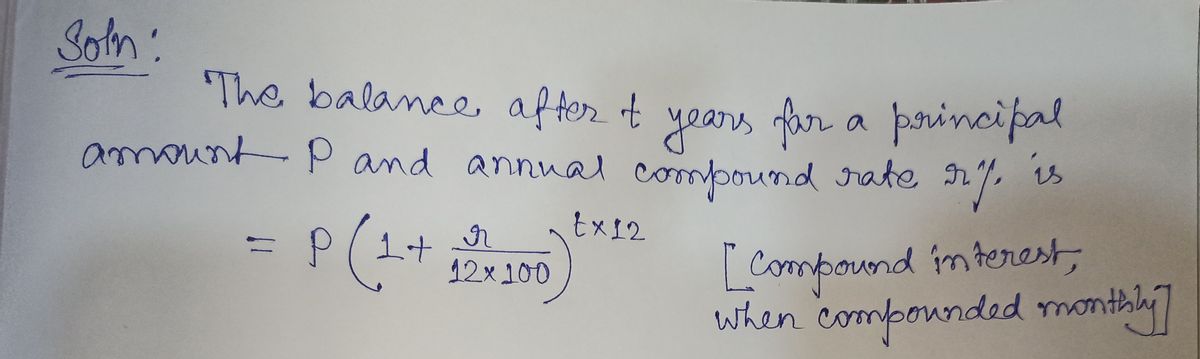 Soln:
The balance after t years for a principal
amount P and annual compound rate r% is
= P(1+ r/(12×100))^(t×12)
[Compound interest,
when compounded monthly]